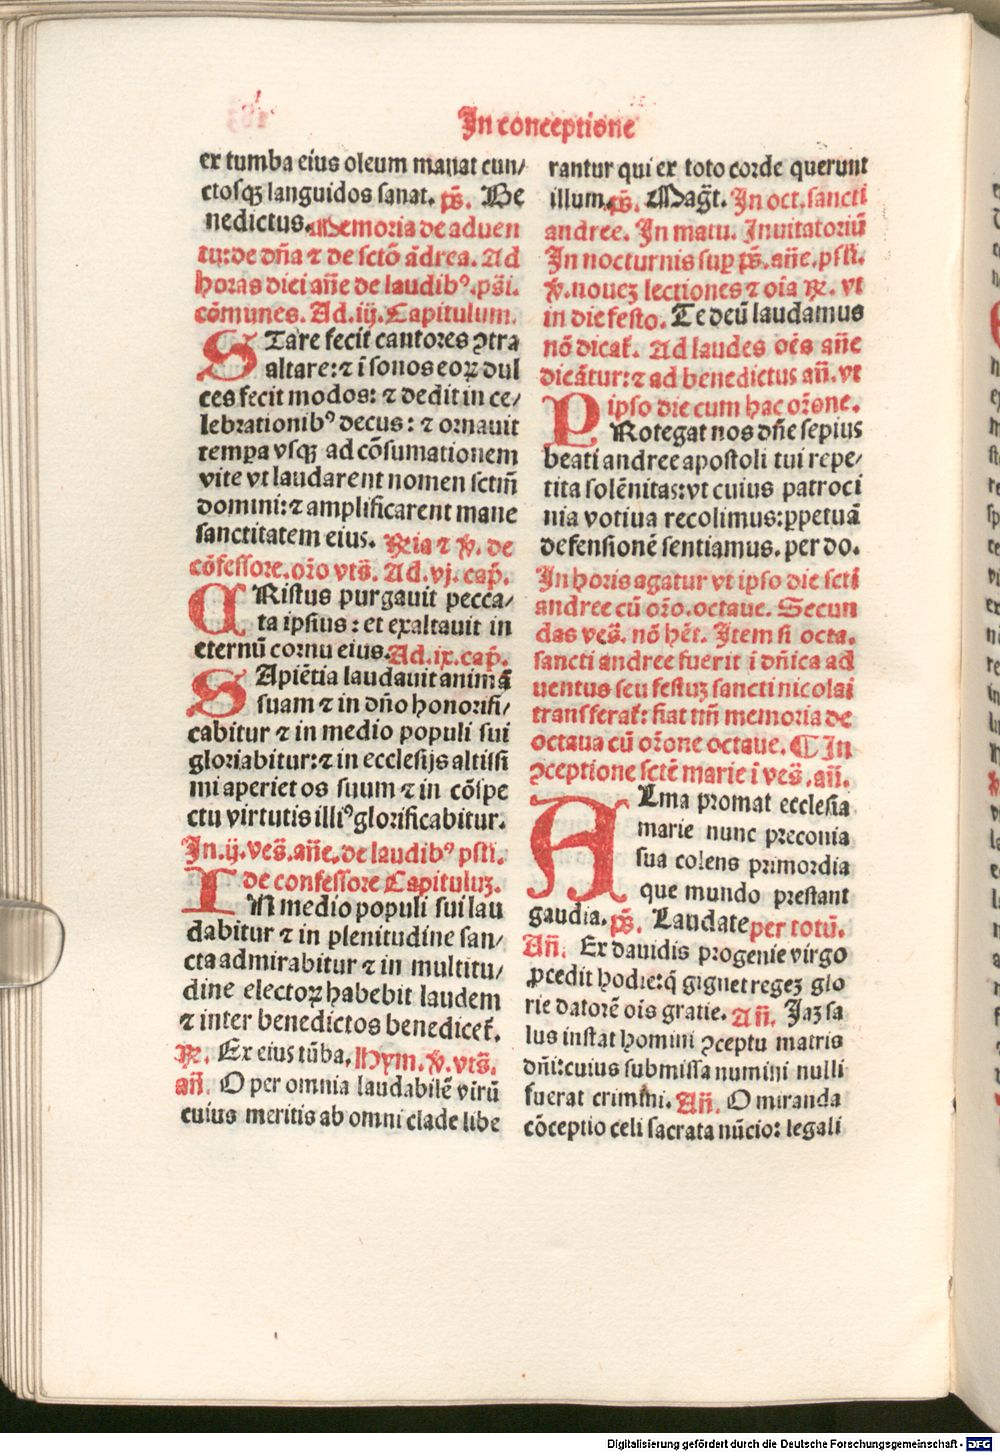 In conceptione
ex tumba eius oleum manat cun/
ctosqꝫ languidos sanat. pẜ. Be
nedictus. Memoria de aduen
tu: de dña ⁊ de sctõ ãdrea. Ad
horas diei añe de laudibꝰ. pẜi.
cõmunes. Ad. iij. Capitulum.
STare fecit cantores ꝯtra
altare: ⁊ ĩ sonos eoꝝ dul
ces fecit modos: ⁊ dedit in ce/
lebrationibꝰ decus: ⁊ ornauit
tempa vsqꝫ ad cõsumationem
vite vt laudarent nomen sctm̃
domini: ⁊ amplificarent mane
sanctitatem eius. Ria ⁊ ℣. de
cõfessore. or̃o vts̃. Ad. vj. cap̃.
CRistus purgauit pecca/
ta ipsius: et exaltauit in
eternũ cornu eius. Ad. ix. cap̃.
SApiẽtia laudauit animã
suam ⁊ in dño honorifi/
cabitur ⁊ in medio populi sui
gloriabitur: ⁊ in ecclesijs altissi
mi aperiet os suum ⁊ in cõspe
ctu virtutis illiꝰ glorificabitur.
In. ij. ves̃. añe. de laudibꝰ psl̃i.
de confessore Capituluꝫ.
IN medio populi sui lau
dabitur ⁊ in plenitudine san/
cta admirabitur ⁊ in multitu/
dine electoꝝ habebit laudem
⁊ inter benedictos benedicet̃.
℞. Ex eius tũba. Hym. ℣. vts̃.
añ. O per omnia laudabilẽ virũ
cuius meritis ab omni clade libe
rantur qui ex toto corde querunt
illum. pẜ. Mag̃t. In oct. sancti
andree. In matu. Inuitatoriũ
In nocturnis sup pẜ. añe. psl̃i.
℣. noueꝫ lectiones ⁊ oĩa ℞. vt
in die festo. Te deũ laudamus
nõ dicat̃. Ad laudes oẽs añe
dicãtur: ⁊ ad benedictus añ. vt
ipso die cum hac or̃one.
PRotegat nos dñe sepius
beati andree apostoli tui repe/
tita solẽnitas: vt cuius patroci
nia votiua recolimus: ꝑpetuã
defensionẽ sentiamus. per do.
In horis agatur vt ipso die scti
andree cũ or̃o. octaue. Secun
das ves̃. nõ hẽt. Item si octa.
sancti andree fuerit ĩ dñica ad
uentus seu festuꝫ sancti nicolai
transferat̃: fiat tm̃ memoria de
octaua cũ or̃one octaue. ¶ In
ꝯceptione sctẽ marie ĩ ves̃. añ.
ALma promat ecclesia
marie nunc preconia
sua colens primordia
que mundo prestant
gaudia. pẜ. Laudate per totũ.
Añ. Ex dauidis progenie virgo
ꝓcedit hodie: q̃ gignet regeꝫ glo
rie datorẽ oĩs gratie. Añ. Jaꝫ sa
lus instat homini ꝯceptu matris
dñi: cuius submissa numini nulli
fuerat crimini. Añ. O miranda
cõceptio celi sacrata nũcio: legali